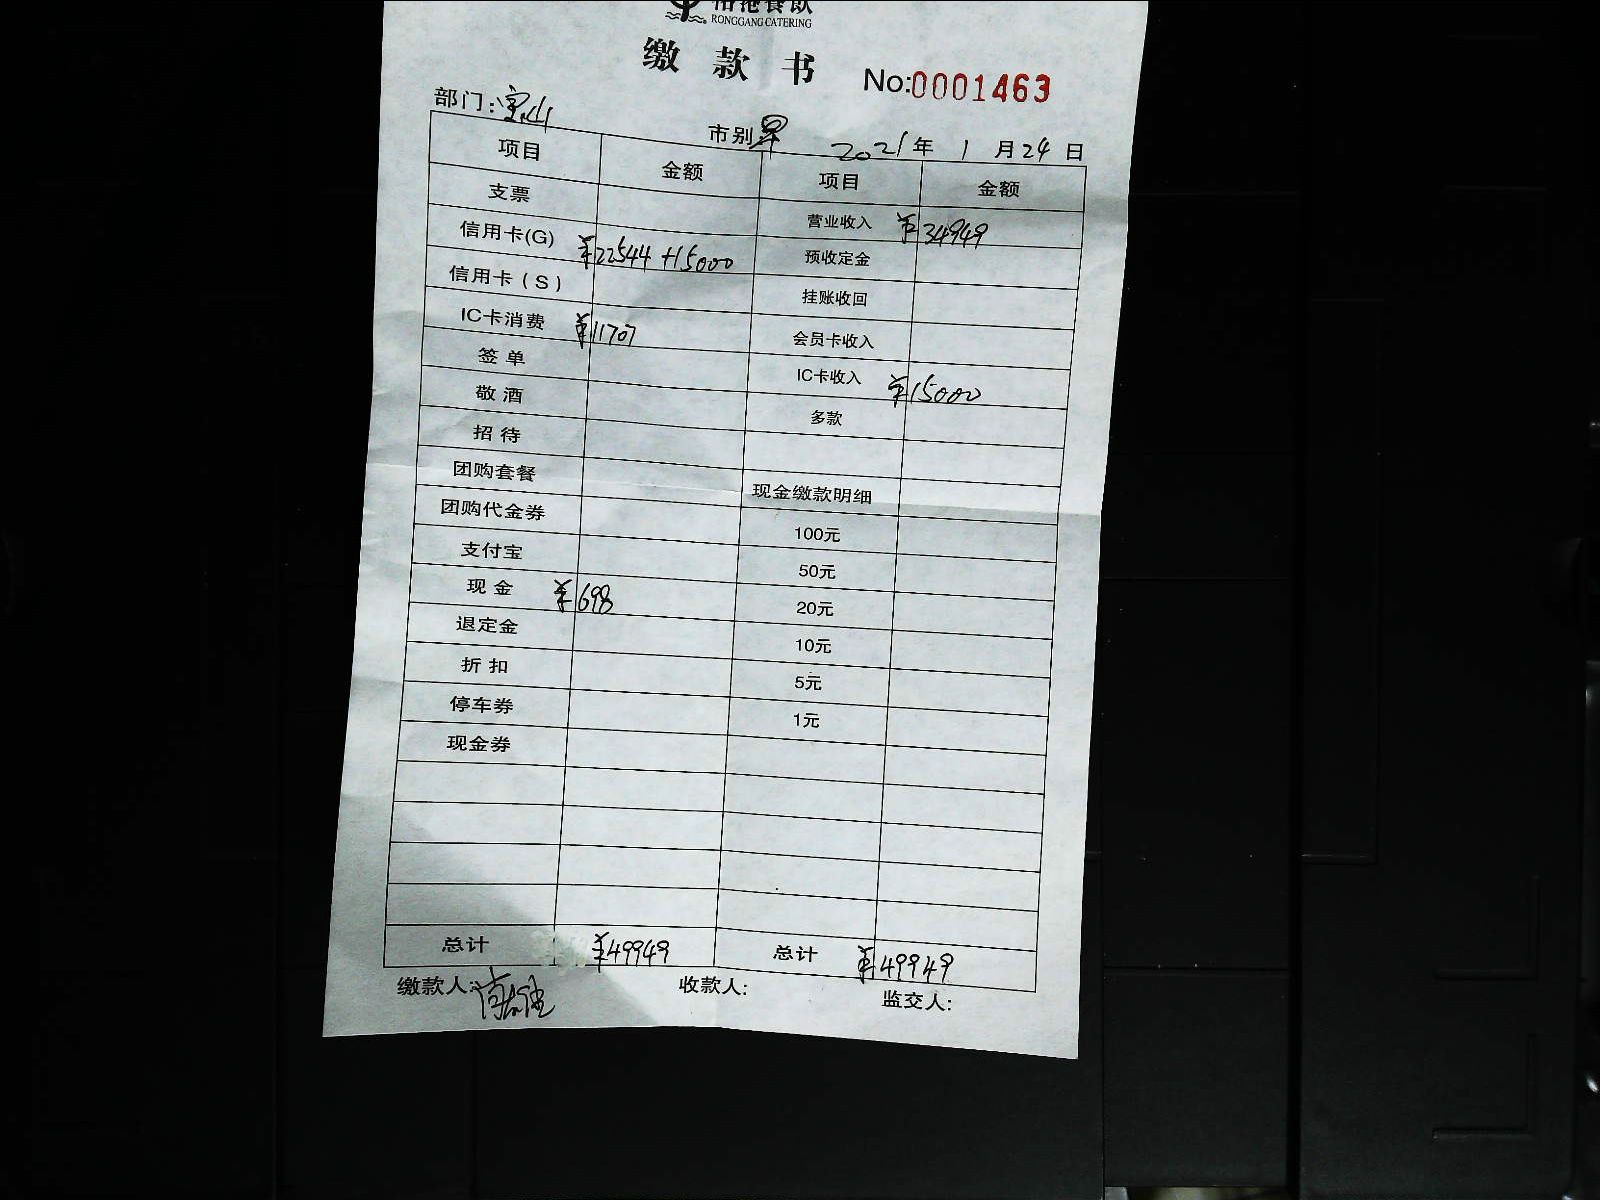 RONGGANG CATERING
缴款书 No:0001463
部门:宝山 市别 早 2021年1月24日
项目 金额 项目 金额
支票 营业收入 ¥34949
信用卡(G) ¥22544+15000 预收定金
信用卡（S） 挂账收回
IC卡消费 ¥11707 会员卡收入
签单 IC卡收入 ¥15000
敬酒 多款
招待
团购套餐 现金缴款明细
团购代金券 100元
支付宝 50元
现金 ¥698 20元
退定金 10元
折扣 5元
停车券 1元
现金券
总计 ¥49949 总计 ¥49949
缴款人: 收款人: 监交人: